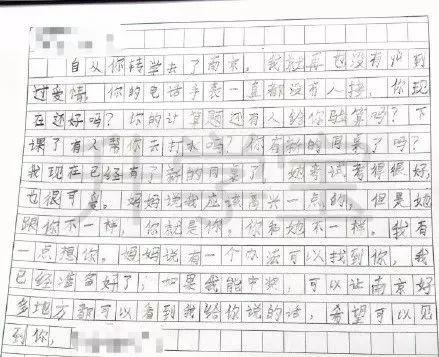 自从你转学去了南京。我就再也没有收到
过爱情。你的电话手表一直都没有人接。你现
在还好吗？你的计算题还有人给你验算吗？下
课了有人帮你去打水吗？你有新的同桌了吗？
我现在已经有了新的同桌了，她考试考得很好，
也很可爱。妈妈说我应该高兴一点的，但是她
跟你不一样，你就是你。你和她不一样。我有
一点想你。妈妈说有一个办法可以找到你，我
已经准备好了，如果我能中奖，可以让南京好
多地方都可以看到我给你说的话，希望可以见
到你，